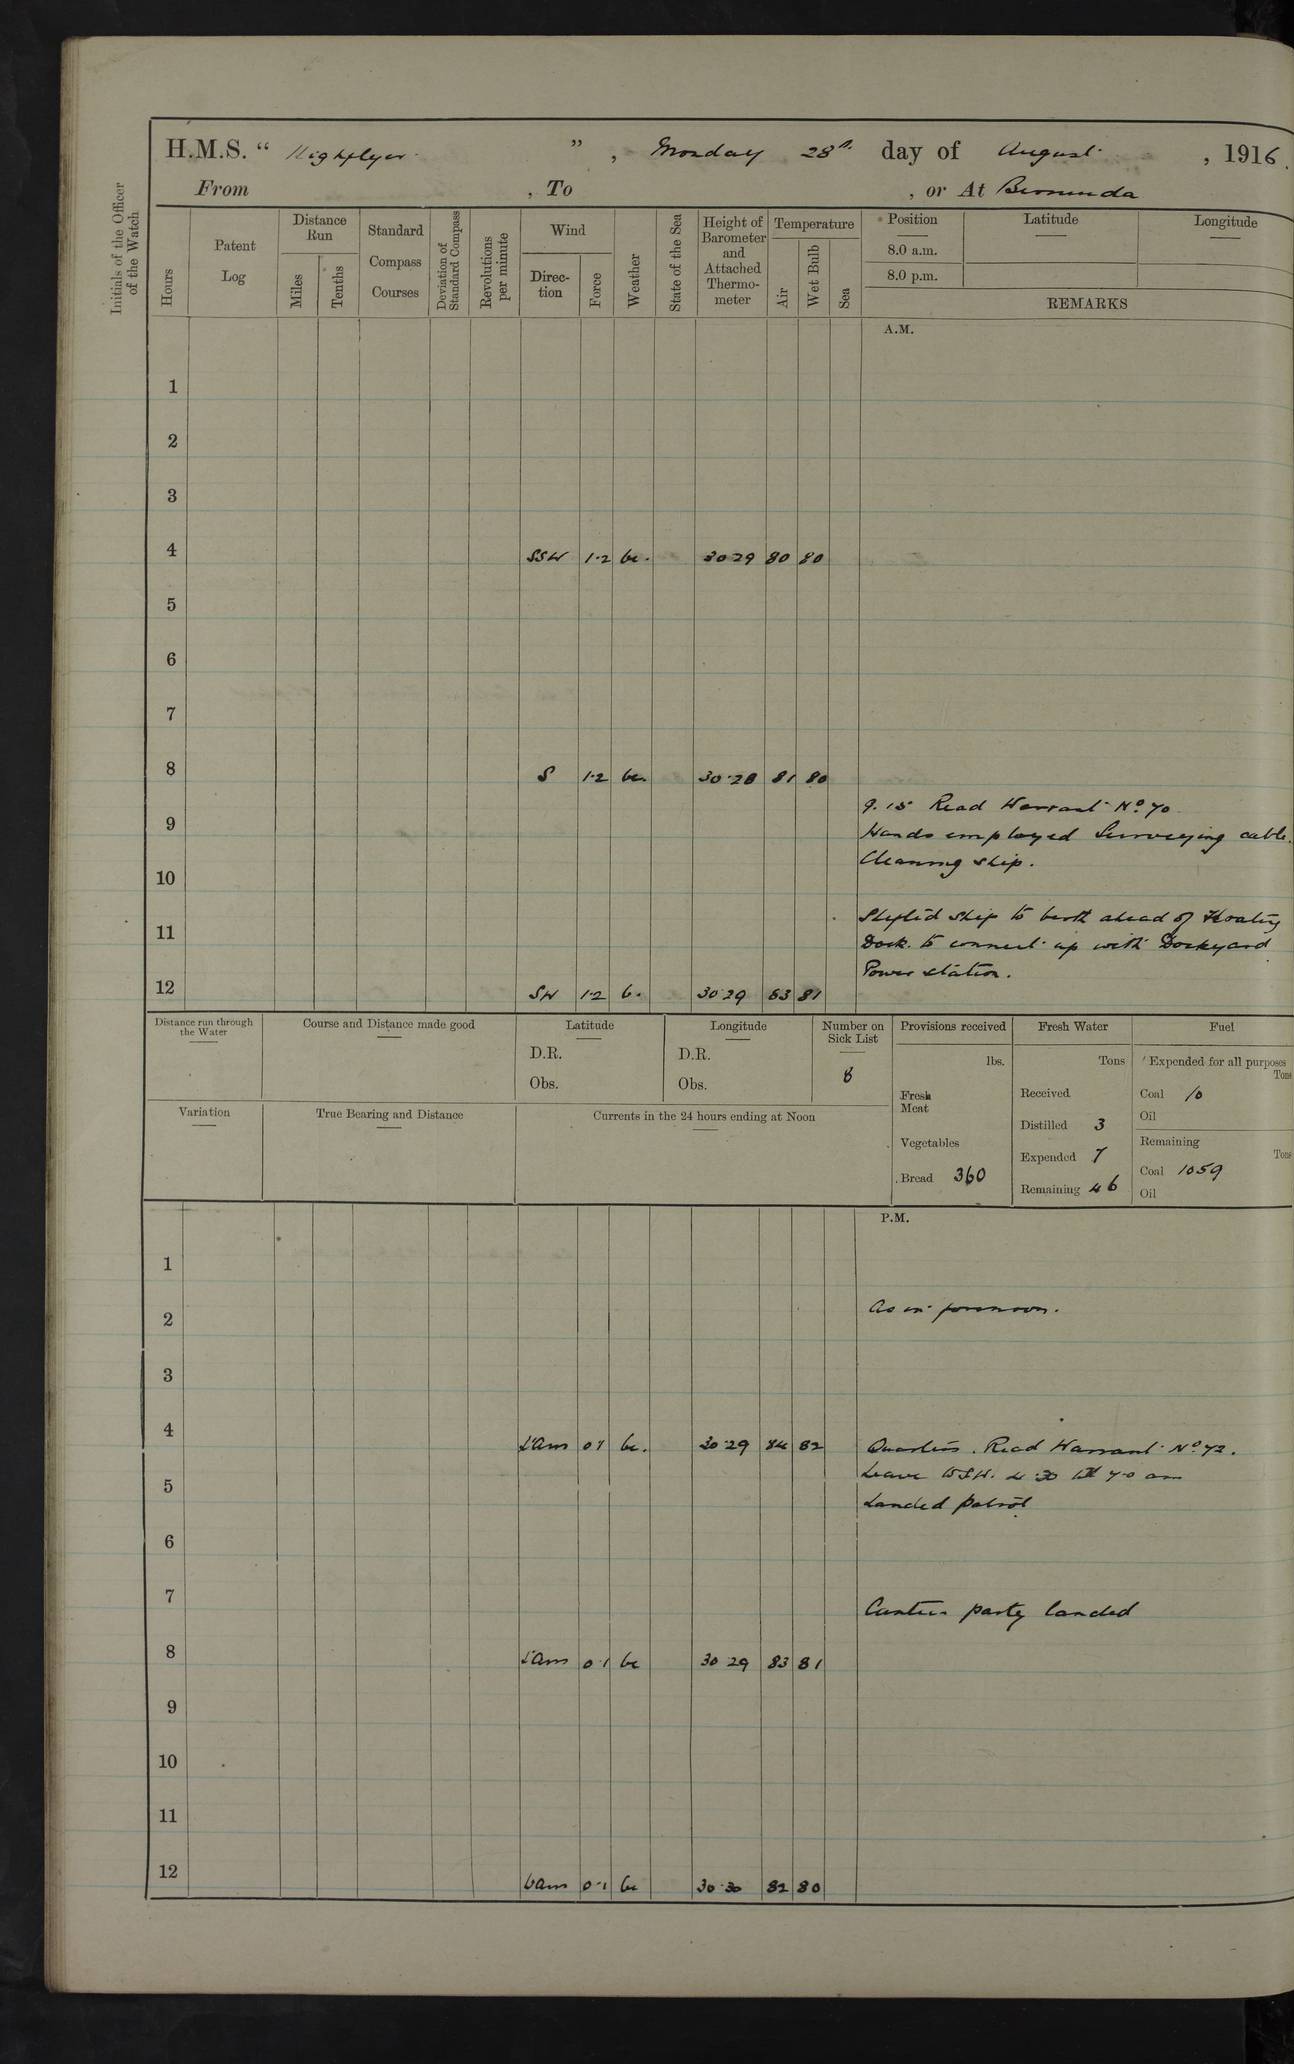 H.M.S. “ Highflyer ” , Monday 28th day of August , 1916.
From , To , or At Bermuda
Initials of the Officer of the Watch
Hours
Patent Log
Distance Run
Miles
Tenths
Standard Compass Courses
Deviation of Standard Compass
Revolutions per minute
Wind
Direc-tion
Force
Weather
State of the Sea
Height of Barometer and Attached Thermo-meter
Temperature
Air
Wet Bulb
Sea
Position Latitude Longitude
8.0 a.m.
8.0 p.m.
REMARKS
A.M.
1
2
3
4 SSW 1·2 bc. 30 29 80 80
5
6
7
8 S 1·2 bc. 30·28 81 80
9.15 Read Warrant No. 70
9
Hands employed Surveying cable.
Cleaning ship.
10
Shifted ship to berth ahead of Floating
11
Dock. to connect up with Dockyard
Power station.
12 SW 1·2 b. 30·29 83 81
Distance run through the Water
Course and Distance made good
Latitude
D.R.
Obs.
Longitude
D.R.
Obs.
Number on Sick List
8
Provisions received
lbs.
Fresh Meat
Vegetables
Bread 360
Fresh Water
Tons
Received
Distilled 3
Expended 7
Remaining 46
Fuel
Expended for all purposes
Tons
Coal 10
Oil
Remaining
Tons
Coal 1059
Oil
Variation
True Bearing and Distance
Currents in the 24 hours ending at Noon
P.M.
1
2 As in forenoon.
3
4 0·1 bc. 30·29 84 82 Quarters. Read Warrant No. 72.
Leave to S.W. 4·30 till 7·0 am
5
Landed patrol
6
7
Canteen party landed
8 0·1 bc 30 29 83 81
9
10
11
12 0·1 bc 30·30 82 80